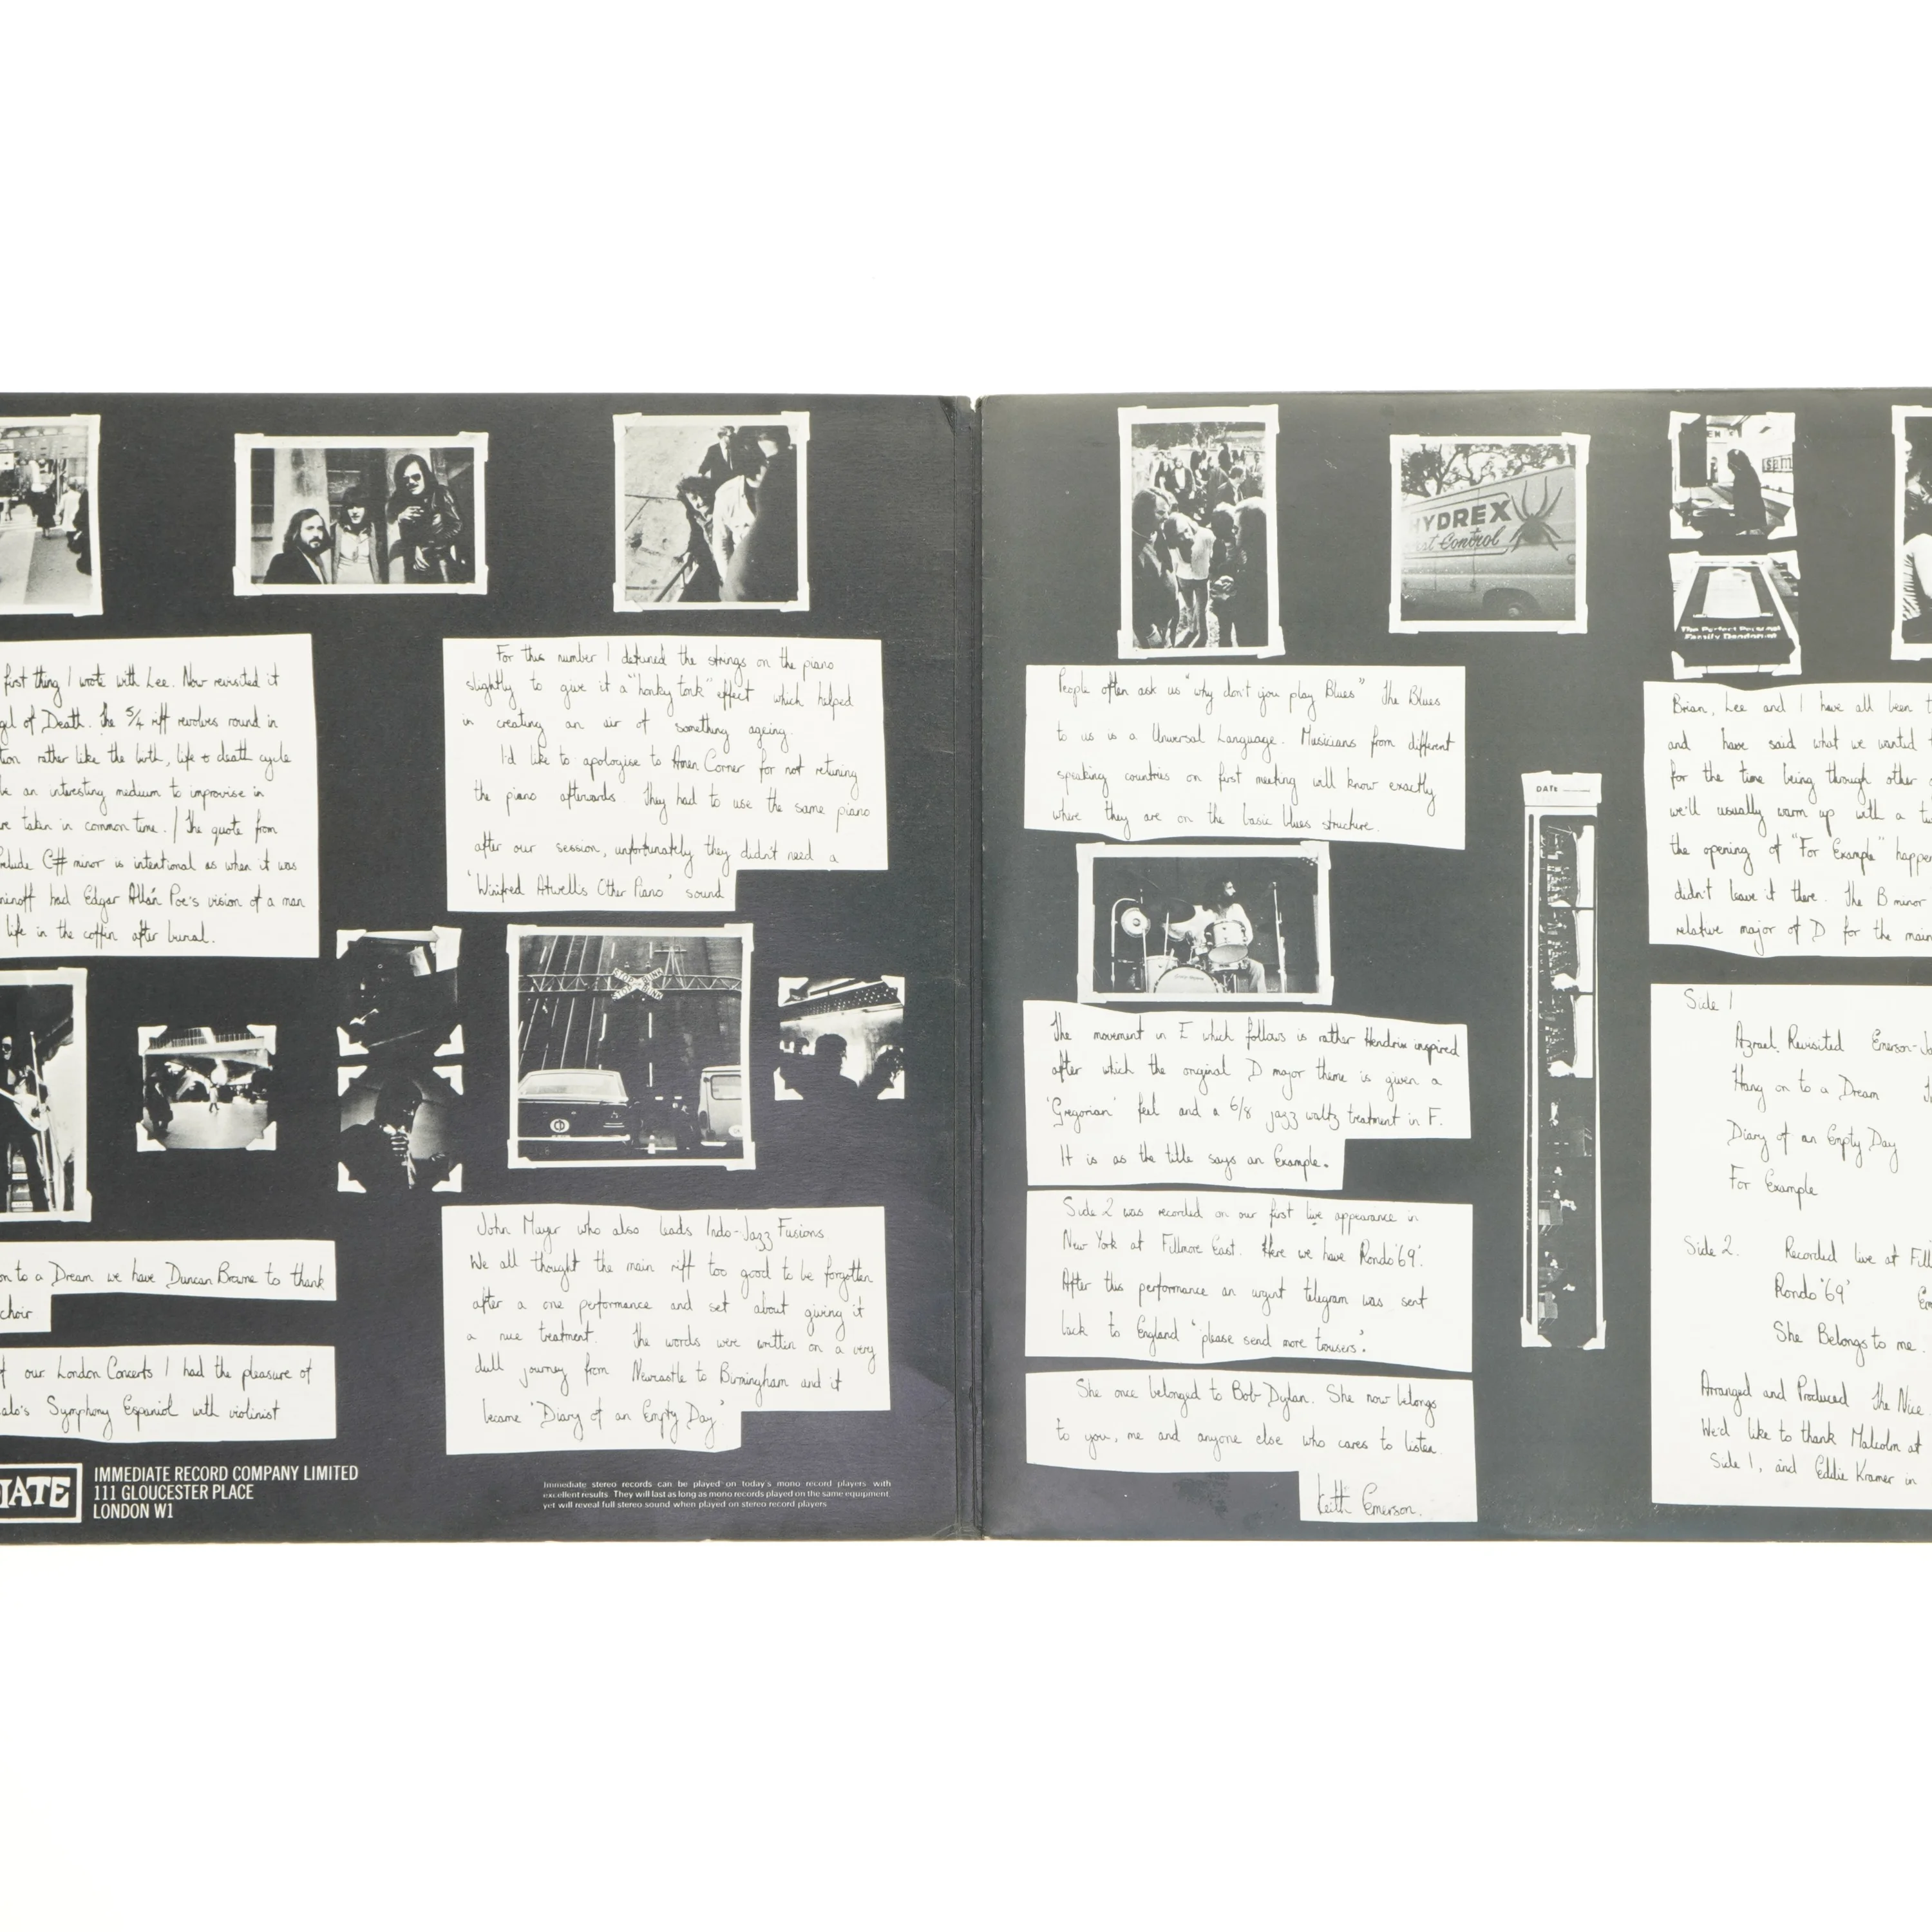 first thing I wrote with Lee. Now revisited it
gel of Death. The 5/4 riff revolves round in
tion rather like the birth, life & death cycle
be an interesting medium to improvise in
re taken in common time. / The quote from
relude C# minor is intentional as when it was
ninoff had Edgar Allán Poe's vision of a man
life in the coffin after burial.
on to a Dream we have Duncan Browne to thank
choir
f our London Concerts I had the pleasure of
alo's Symphony Espaniol with violinist
IATE
IMMEDIATE RECORD COMPANY LIMITED
111 GLOUCESTER PLACE
LONDON W1
For this number I detuned the strings on the piano
slightly to give it a "honky tonk" effect which helped
in creating an air of something ageing.
I'd like to apologise to Amen Corner for not retuning
the piano afterwards They had to use the same piano
after our session, unfortunately they didn't need a
'Winifred Atwell's Other Piano' sound
John Mayer who also leads Indo-Jazz Fusions
We all thought the main riff too good to be forgotten
after a one performance and set about giving it
a nice treatment. The words were written on a very
dull journey from Newcastle to Birmingham and it
became 'Diary of an Empty Day'.
Immediate stereo records can be played on today's mono record players with
excellent results. They will last as long as mono records played on the same equipment,
yet will reveal full stereo sound when played on stereo record players
HYDREX
est Control
The Perfect Personal
Family Deodorant
People often ask us "why don't you play Blues" The Blues
to us is a Universal Language. Musicians from different
speaking countries on first meeting will know exactly
where they are on the basic blues structure.
The movement in E which follows is rather Hendrix inspired
after which the original D major theme is given a
'Gregorian' feel and a 6/8 jazz waltz treatment in F.
It is as the title says an Example.
Side 2 was recorded on our first live appearance in
New York at Fillmore East. Here we have Rondo '69'.
After this performance an urgent telegram was sent
back to England 'please send more trousers'.
She once belonged to Bob Dylan. She now belongs
to you, me and anyone else who cares to listen.
Keith Emerson.
DATE
Brian, Lee and I have all been t
and have said what we wanted t
for the time being through other
we'll usually warm up with a tu
the opening of "For Example" happe
didn't leave it there. The B minor
relative major of D for the main
Side 1
Azrael Revisited Emerson-Ja
Hang on to a Dream
Diary of an Empty Day
For Example
Side 2. Recorded live at Fill
Rondo '69' Em
She Belongs to me.
Arranged and Produced The Nice.
We'd like to thank Malcolm at
Side 1, and Eddie Kramer in